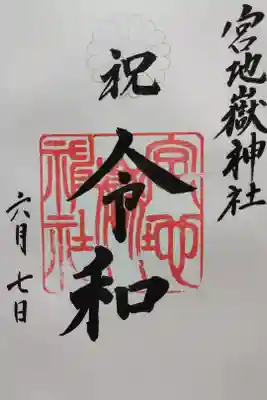 宮地嶽神社
祝
令和
六月七日
宮地
嶽神社